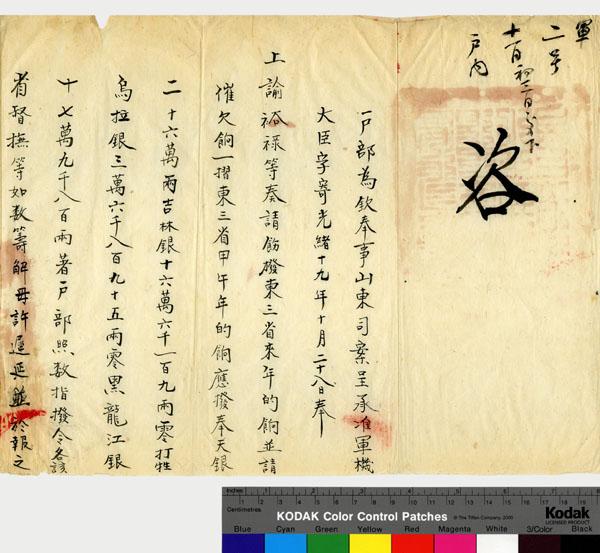 軍
二号
十月初三日
戶內
咨
戶部為欽奉事山東司案呈承准軍機
大臣字寄光緒十九年十月二十八日奉
上諭裕祿等奏請飭撥東三省來年的餉並請
催欠餉一摺東三省甲午年的餉應撥奉天銀
二十六萬兩吉林銀十六萬六千一百九兩零打牲
烏拉銀三萬六千八百九十五兩零黑龍江銀
十七萬九千八百兩著戶部照數指撥令各該
省督撫等如數籌解毋許遲延並於報之
Inches 1 2 3 4 5 6 7 8
Centimetres 1 2 3 4 5 6 7 8 9 10 11 12 13 14 15 16 17 18 19
KODAK Color Control Patches
© The Tiffen Company, 2000
Kodak
LICENSED PRODUCT
Blue Cyan Green Yellow Red Magenta White 3/Color Black